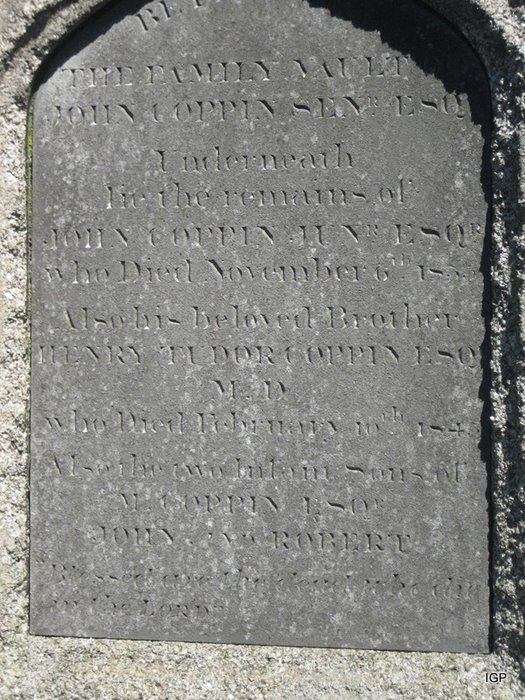 THE FAMILY VAULT
JOHN COPPIN SENR ESQ
Underneath
lie the remains of
JOHN COPPIN JUNR ESQR
who Died November 6th
Also his beloved Brother
HENRY TUDOR COPPIN ESQ
M.D
who Died February 10th 184
Also the two Infant Sons of
M. COPPIN ESQR
JOHN AND ROBERT
"Blessed are the dead who die
in the LORD"
IGP